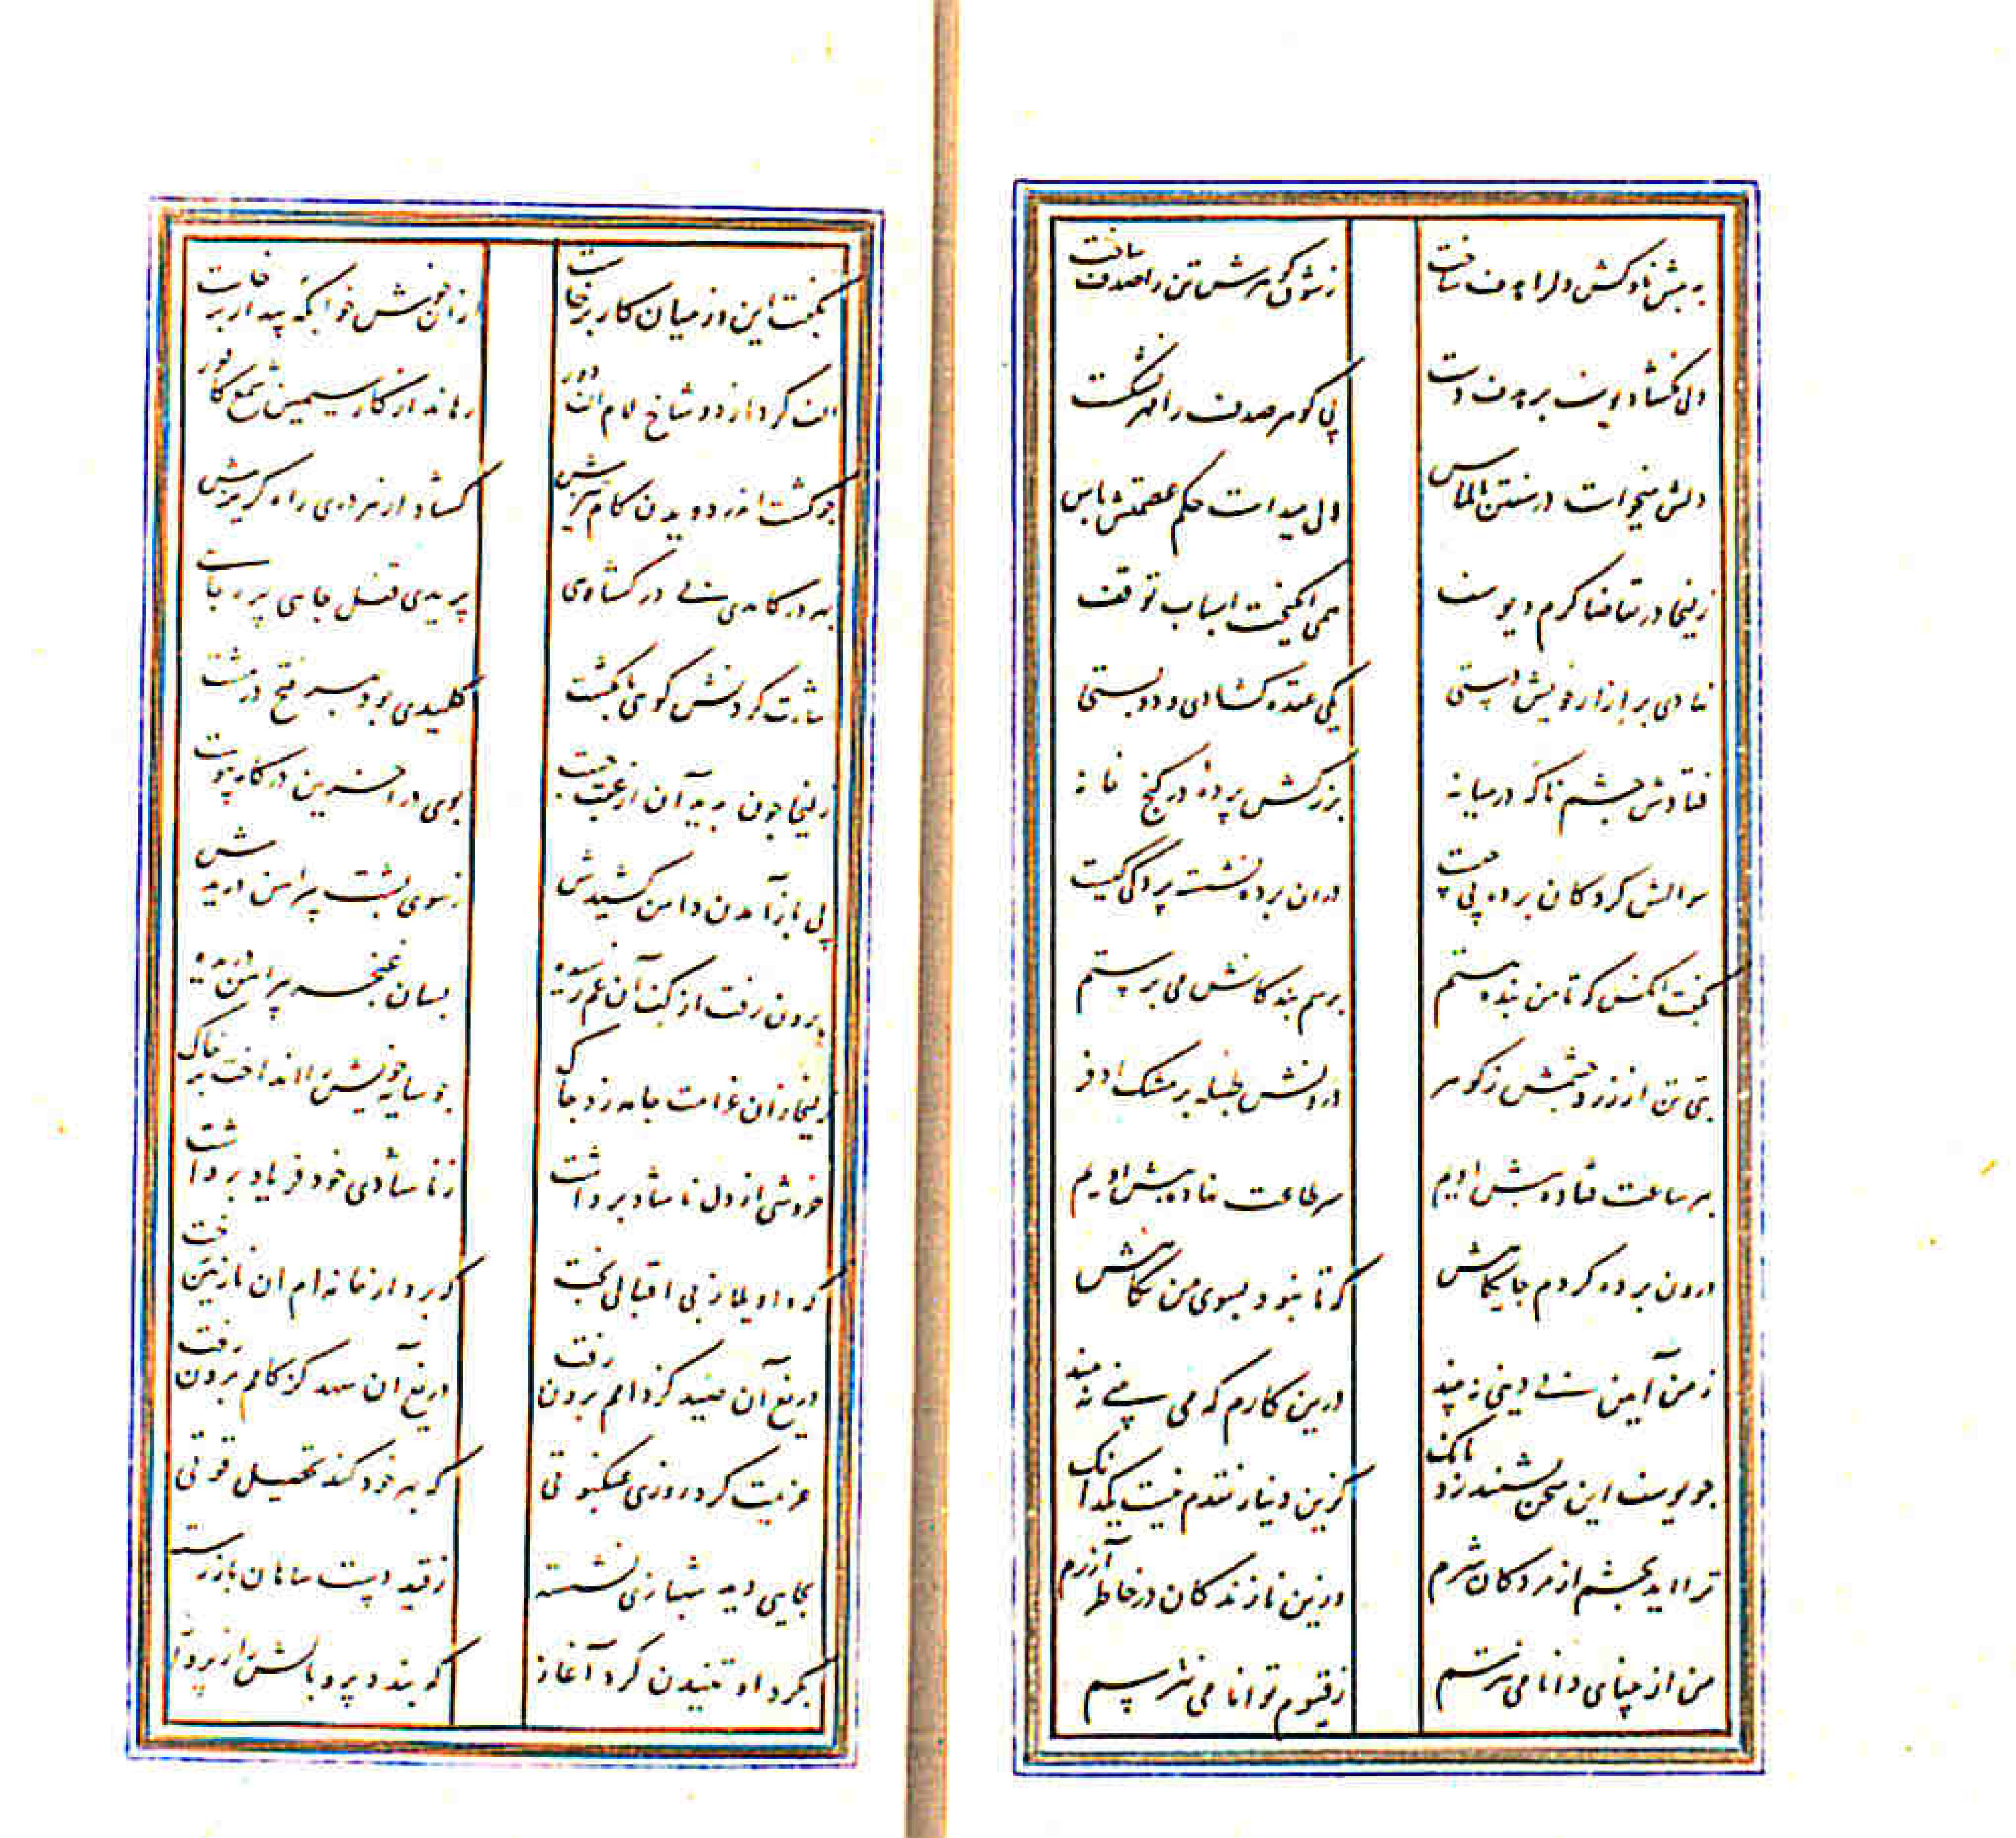 به پیش ناوکش دلرا هدف ساخت ز شوق گوهرش تن را صدف ساخت
ولی نگشاد یوسف بر هدف شست پی گوهر صدف را مهر نشکست
دلش میخواست در سفتن بالماس ولی میداشت حکم عصمتش پاس
زلیخا در تقاضا گرم و یوسف همی انگیخت اسباب توقف
نهادی بر ازار خویش دستی یکی عقده گشادی و دو بستی
فتادش چشم ناگه در میانه بزرکش پرده در کنج خانه
سوالش کرد کان پرده پی چیست در آن پرده نشسته پردگی کیست
بگفت آنکس که تا من بنده هستم برسم بندگانش می پرستم
بتی تن از زر و چشمش ز گوهر درونش طبله پر مشک اذفر
بهر ساعت فتاده پیش اویم سر طاعت نهاده پیش اویم
درون پرده کردم جایگاهش که تا نبود بسوی من نگاهش
ز من آیین بی دینی نه بیند درین کارم که می بینی نه بیند
چو یوسف این سخن بشنید زد بانک کزین دینار نقدم نیست یکدانک
ترا آید بچشم از مردگان شرم وزین نازندگان در خاطر آزرم
من از بینای دانا می نترسم ز قیوم توانا می نترسم
بگفت این وز میان کار برخاست از آن خوش خوابگه بیدار برخاست
الف کرد از دو شاخ لام الف دور رهاند از کاز سیمین شمع کافور
چو گشت اندر دویدن گام تیزش گشاد از هر دری راه گریزش
بهر در کامدی بی در گشایی پریدی قفل جایی پره جایی
اشارت کردنش گویی بانگشت کلیدی بود بهر فتح در مشت
زلیخا چون بدید آن از عقب جست بوی در آخرین درگاه پیوست
پی باز آمدن دامن کشیدش ز سوی پشت پیراهن دریدش
برون رفت از کف آن غم رسیده بسان غنچه پیراهن دریده
زلیخا زان غرامت جامه زد چاک چو سایه خویش را انداخت بر خاک
خروشی از دل ناشاد برداشت ز ناشادی خود فریاد برداشت
که واویلا ز بی اقبالی بخت که برد از خانه ام آن نازنین رخت
دریغ آن صید کز دامم برون رفت دریغ آن شهد کز کامم برون رفت
عزیمت کرد روزی عنکبوتی که بهر خود کند تحصیل قوتی
بجایی دید شهبازی نشسته ز قید دست شاهان باز رسته
بگرد او تنیدن کرد آغاز که بندد پر و بالش را ز پرواز